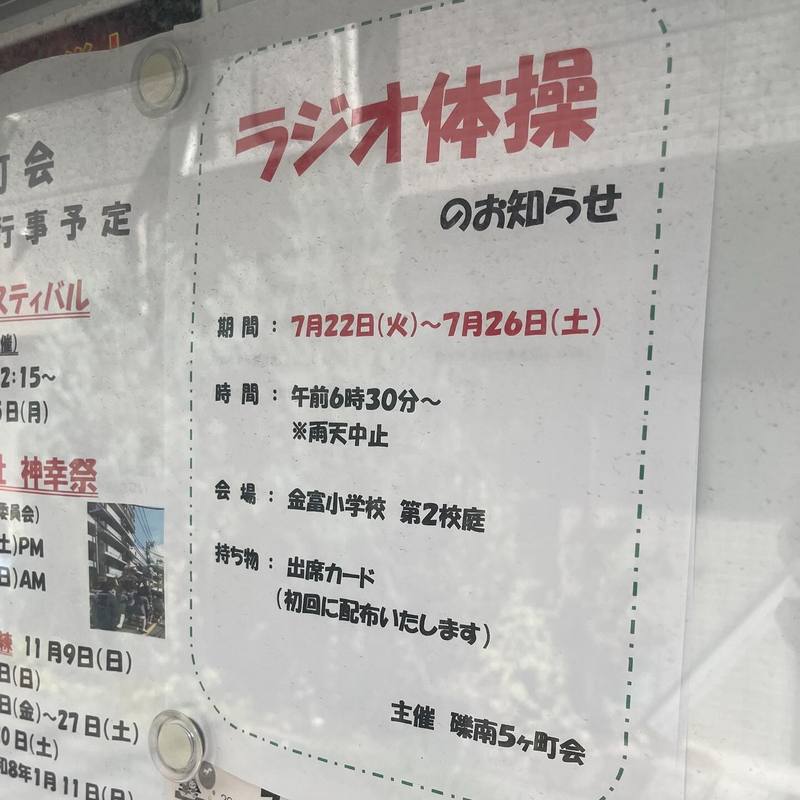 町会
行事予定
スティバル
催)
2:15～
日(月)
神幸祭
委員会)
土)PM
日)AM
11月9日(日)
日(日)
日(金)～27日(土)
0日(土)
和8年1月11日(日)
ラジオ体操
のお知らせ
期間：7月22日(火)～7月26日(土)
時間：午前6時30分～
※雨天中止
会場：金富小学校 第2校庭
持ち物：出席カード
(初回に配布いたします)
主催 礫南5ヶ町会